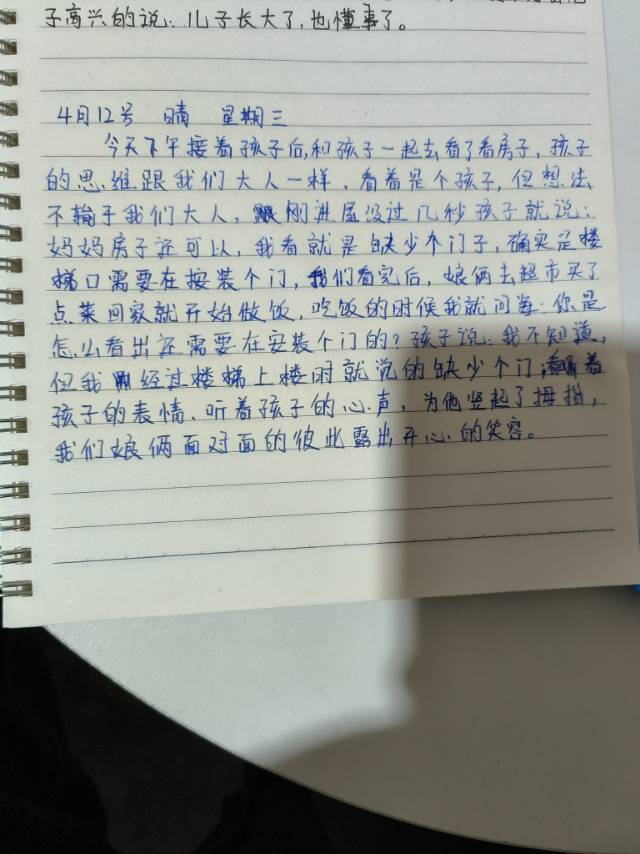 子高兴的说：儿子长大了，也懂事了。
4月12号 晴 星期三
今天下午接着孩子后，和孩子一起去看了看房子，孩子
的思维跟我们大人一样，看着是个孩子，但想法
不输于我们大人，刚进屋没过几秒孩子就说：
妈妈房子还可以，我看就是缺少个门子，确实是楼
梯口需要在按装个门，我们看完后，娘俩去超市买了
点菜回家就开始做饭，吃饭的时候我就问每：你是
怎么看出还需要在安装个门的？孩子说：我不知道，
但我经过楼梯上楼时就觉的缺少个门，看着
孩子的表情、听着孩子的心声，为他竖起了拇指，
我们娘俩面对面的彼此露出开心的笑容。